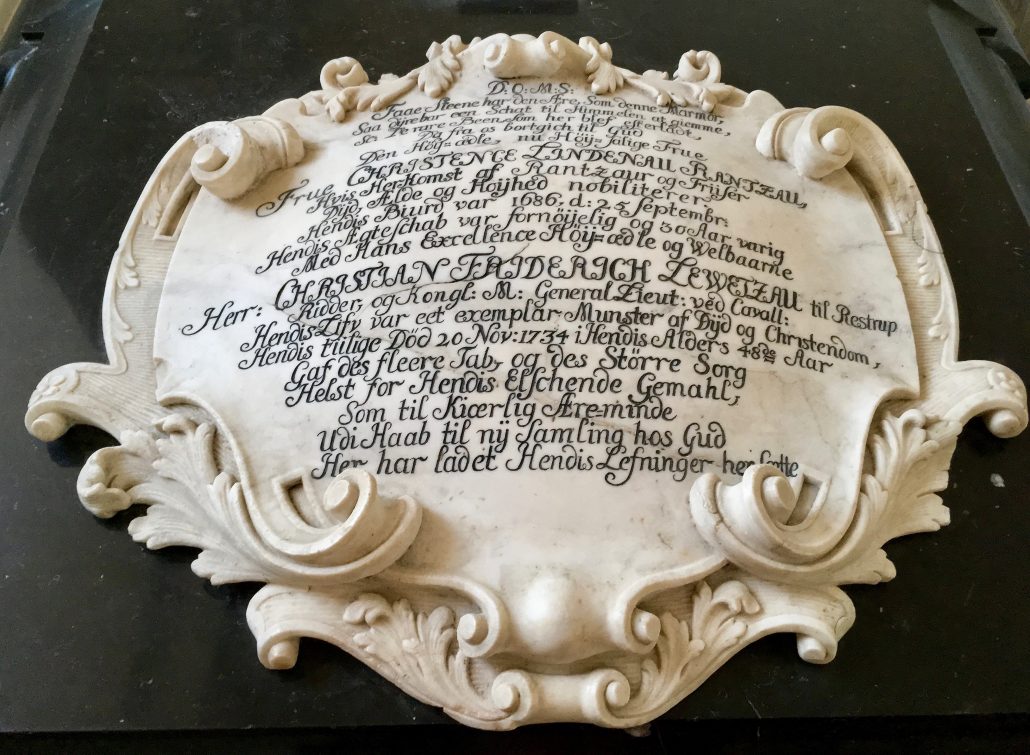 D: O: M: S:
Faae Steene har den Ære, Som denne Marmor,
Saa dyrebar een Schat til Himmelen at giemme,
Se Been som her blef efterladt,
Da fra os bortgich til Gud
Den Höÿ=ædle, nu Höÿ=salige Frue
Frue CHRISTENCE LINDENAU RANTZAU,
Hvis Her-Komst af Rantzaur og Friiser
Dÿd, Ælde og Höÿhed nobiliterer
Hendis Biurd var 1686. d: 25 Septembr:
Hendis Ægteschab var fornöÿelig og 30 Aar varig
Med Hans Excellence Höÿ=ædle og Welbaarne
Herr: CHRISTIAN FRIDERICH LEWETZAU til Restrup
Ridder, og Kongl: M: General Lieut: ved Cavall:
Hendis Lify var eet exemplar Munster af Dÿd og Christendom,
Hendis tiilige Död 20 Nov: 1734 i Hendis Alders 48de Aar
Gaf des fleere Tab, og des Större Sorg
Helst for Hendis Elschende Gemahl,
Som til Kiærlig Ære-minde
Udi Haab til nÿ Samling hos Gud
Her har ladet Hendis Lefninger her sætte